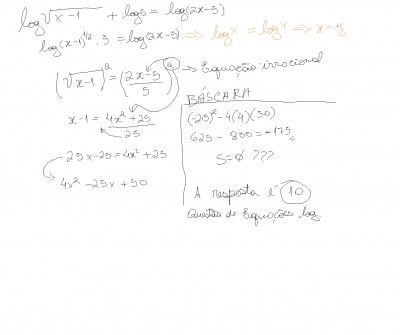 log √x-1 + log5 = log(2x-5)
log(x-1)^1/2 . 5 = log(2x-5) ⇒ logˣ = logʸ ⇒ x = y
(√x-1)² = (2x-5/5)² → Equação irracional
x-1 = 4x²+25/25
25x-25 = 4x²+25
4x² -25x +50
BÁSCARA
(-25)² -4(4)(50)
625 - 800 = -175
S=∅ ???
A resposta é 10
Questão de Equações log.